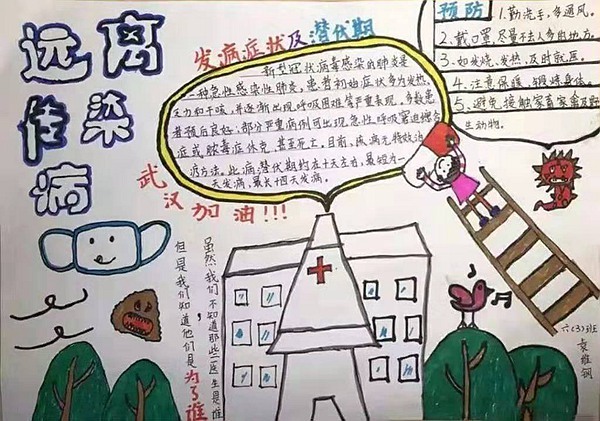 远离
传染
病
发病症状及潜伏期
新型冠状病毒感染的肺炎是
一种急性感染性肺炎，患者初始症状多为发热、
乏力和干咳，并逐渐出现呼吸困难等严重表现。多数患
者预后良好，部分严重病例可出现急性呼吸窘迫综合
症或脓毒症休克，甚至死亡。目前，疾病无特效治
疗方法。此病潜伏期约在十天左右，最短为一
天发病，最长十四天发病。
预防
1.勤洗手，多通风。
2.戴口罩，尽量不去人多的地方。
3.如发烧、发热，及时就医。
4.注意保暖，锻炼身体。
5.避免接触家畜家禽及野
生动物。
武汉加油!!!
虽然我们不知道那些医生是谁，
但是我们知道他们是为了谁
六(3)班